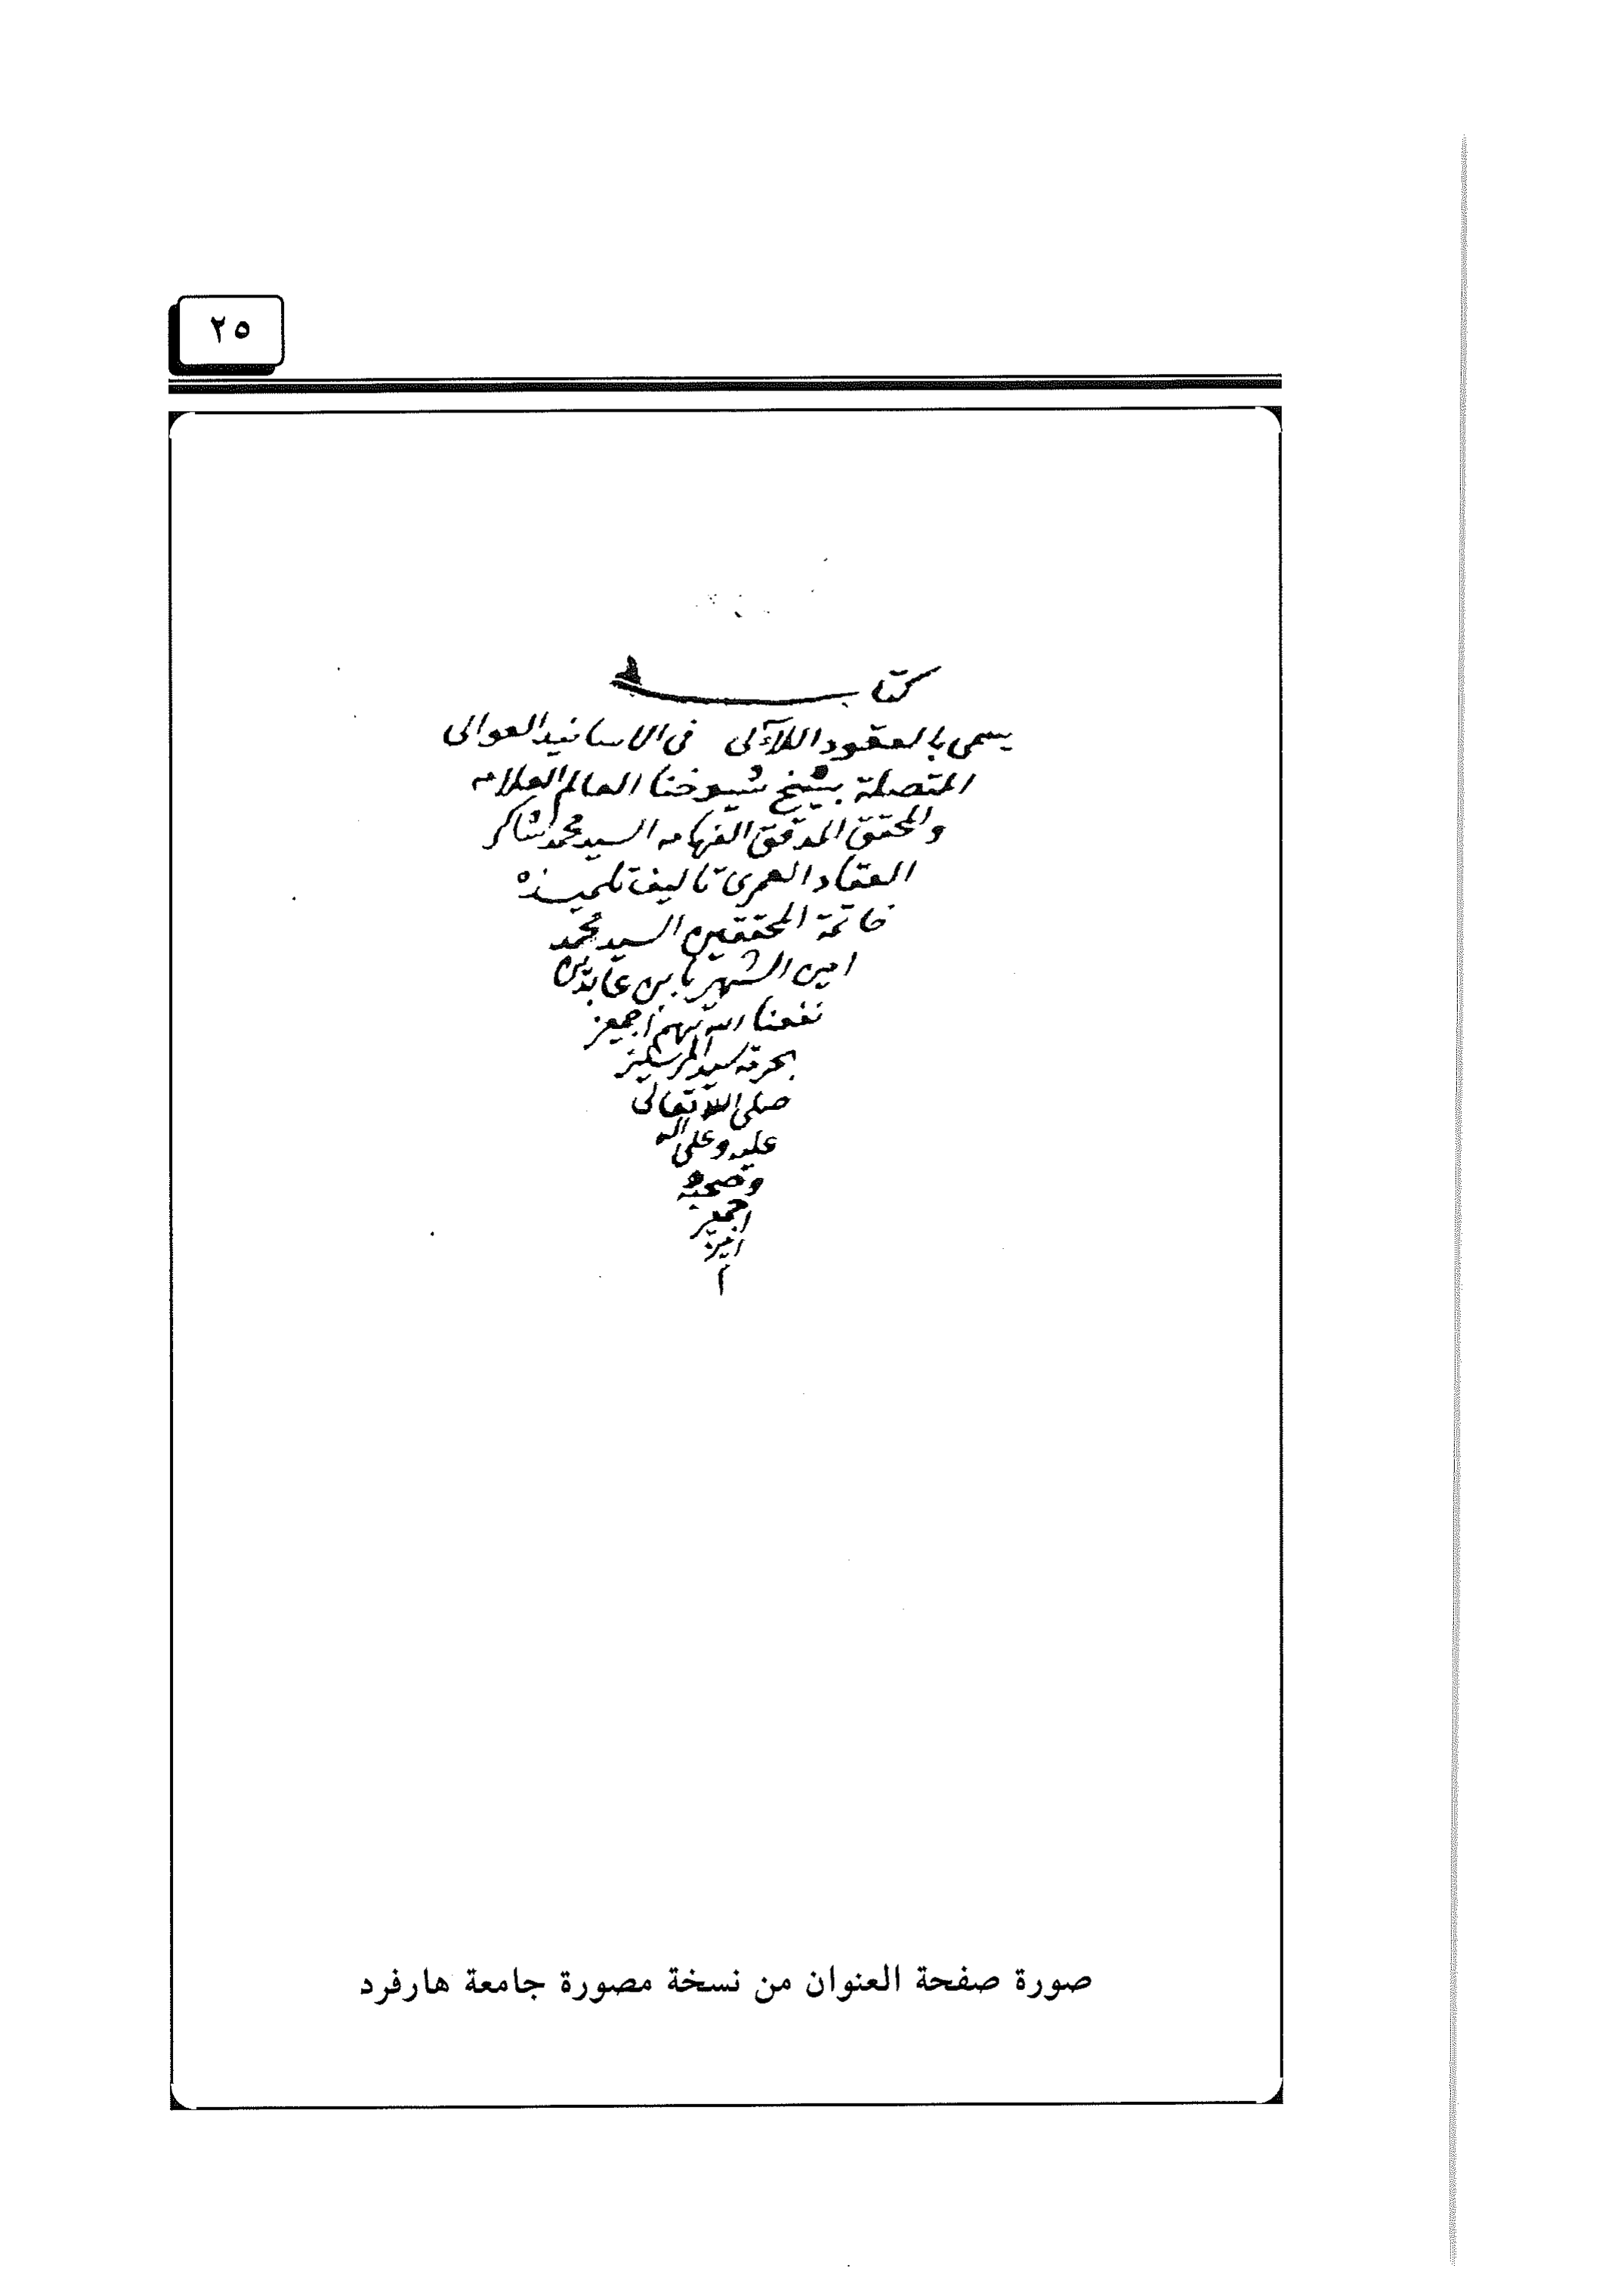 ٢٥
كتاب
يسمى بالعقود اللآلى فى الاسانيد العوالى
المتصلة بشيخ شيوخنا العالم العلامه
والمحقق المدقق الفهامه السيد محمد شاكر
العقاد العمرى تاليف تلميذه
خاتمة المحققين السيد محمد
امين الشهير بابن عابدين
نفعنا الله بهم اجمعين
بحرمة سيد المرسلين
صلى الله تعالى
عليه وعلى اله
وصحبه
اجمعين
امين
م
صورة صفحة العنوان من نسخة مصورة جامعة هارفرد